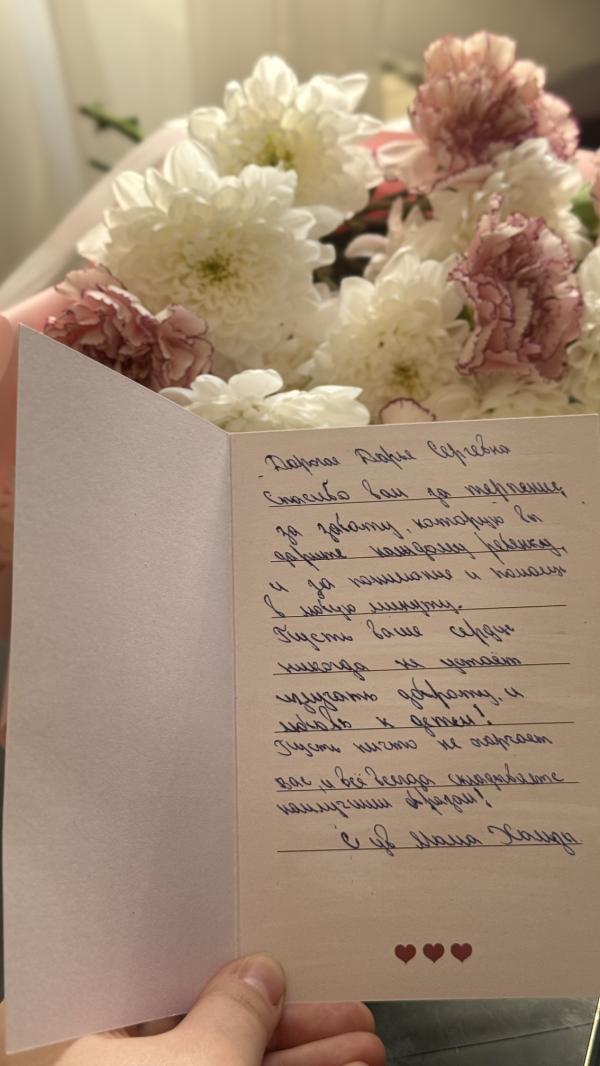 Дорогая Дарья Сергеевна
Спасибо вам за терпение,
за заботу, которую вы
дарите каждому ребёнку,
и за понимание и помощь
в любую минуту.
Пусть ваше сердце
никогда не устаёт
излучать доброту и
любовь к детям!
Пусть ничто не огорчает
вас, и всё всегда складывается
наилучшим образом!
С ув мама